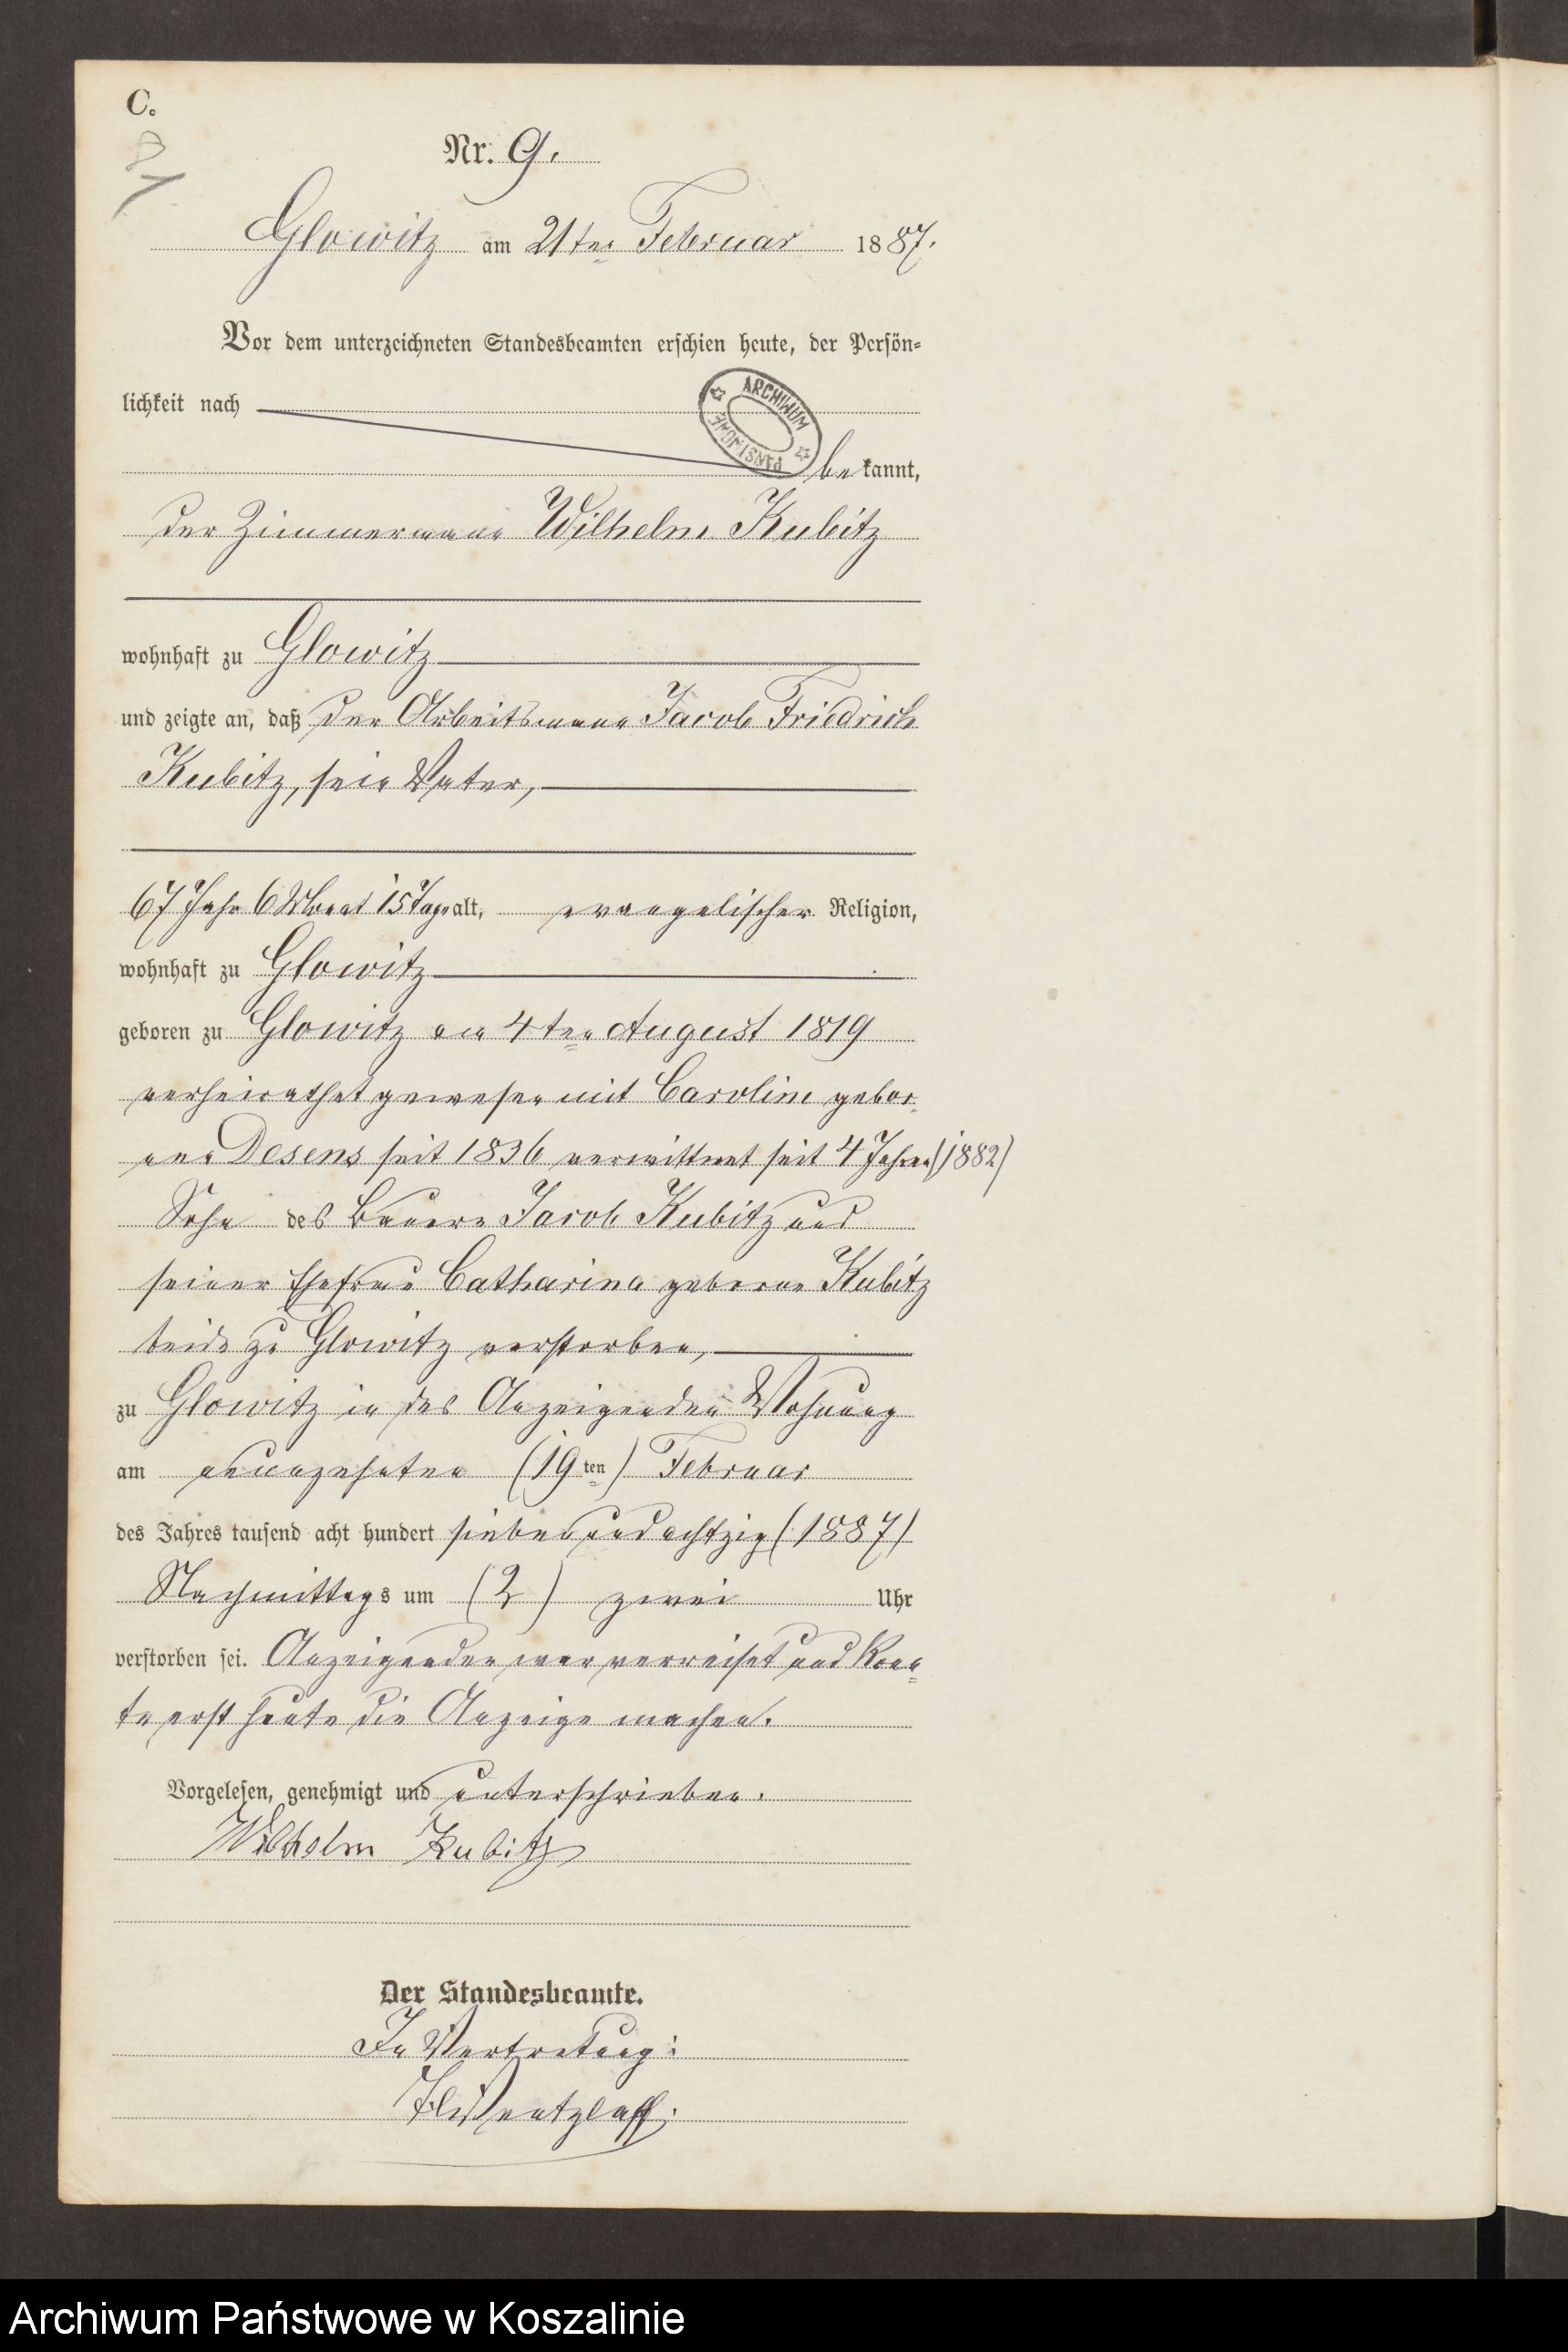 C.
Nr. 9.
Glowitz am 21ten Februar 1887.
Vor dem unterzeichneten Standesbeamten erschien heute, der Persön-
lichkeit nach
ARCHIWUM PAŃSTWOWE
bekannt,
der Zimmermann Wilhelm Kubitz
wohnhaft zu Glowitz
und zeigte an, daß der Arbeitsmann Jacob Friedrich
Kubitz, sein Vater,
67 Jahr 6 Monat 15 Tage alt, evangelischer Religion,
wohnhaft zu Glowitz
geboren zu Glowitz am 4ten August 1819
verheirathet gewesen mit Caroline gebor-
ene Desens seit 1836 verwittwet seit 4 Jahren (1882)
Sohn des Bauern Jacob Kubitz und
seiner Ehefrau Catharina geborne Kubitz
beide zu Glowitz verstorben,
zu Glowitz in des Anzeigenden Wohnung
am neunzehnten (19ten) Februar
des Jahres tausend acht hundert siebenundachtzig (1887)
Nachmittags um (2) zwei Uhr
verstorben sei. Anzeigender war verreiset und konn-
te erst heute die Anzeige machen.
Vorgelesen, genehmigt und unterschrieben.
Wilhelm Kubitz
Der Standesbeamte.
In Vertretung:
Archiwum Państwowe w Koszalinie